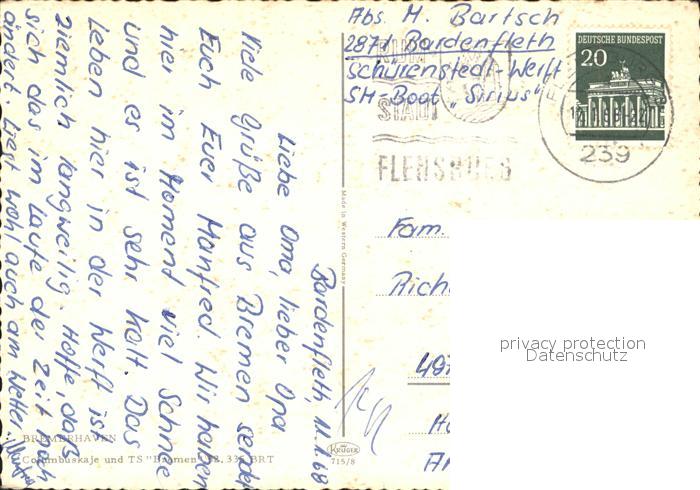 Abs. M. Bartsch
2871 Bardenfleth
Schürenstedt-Werft
SH-Boot "Sirius"
DEUTSCHE BUNDESPOST
20
STADT
FLENSBURG
239
Bardenfleth, 11.1.68
Liebe Oma, lieber Opa
Viele Grüße aus Bremen sendet
Euch Euer Manfred. Wir haben
hier im Moment viel Schnee
und es ist sehr kalt. Das
Leben hier in der Werft ist
ziemlich langweilig. Hoffe, daß
sich das im Laufe der Zeit noch
ändert. Liegt wohl auch am Wetter.
Made in Western Germany
Fam.
Rich
497
KRÜGER
715/8
BREMERHAVEN
Columbuskaje und TS "Bremen" 32.336 BRT
privacy protection
Datenschutz